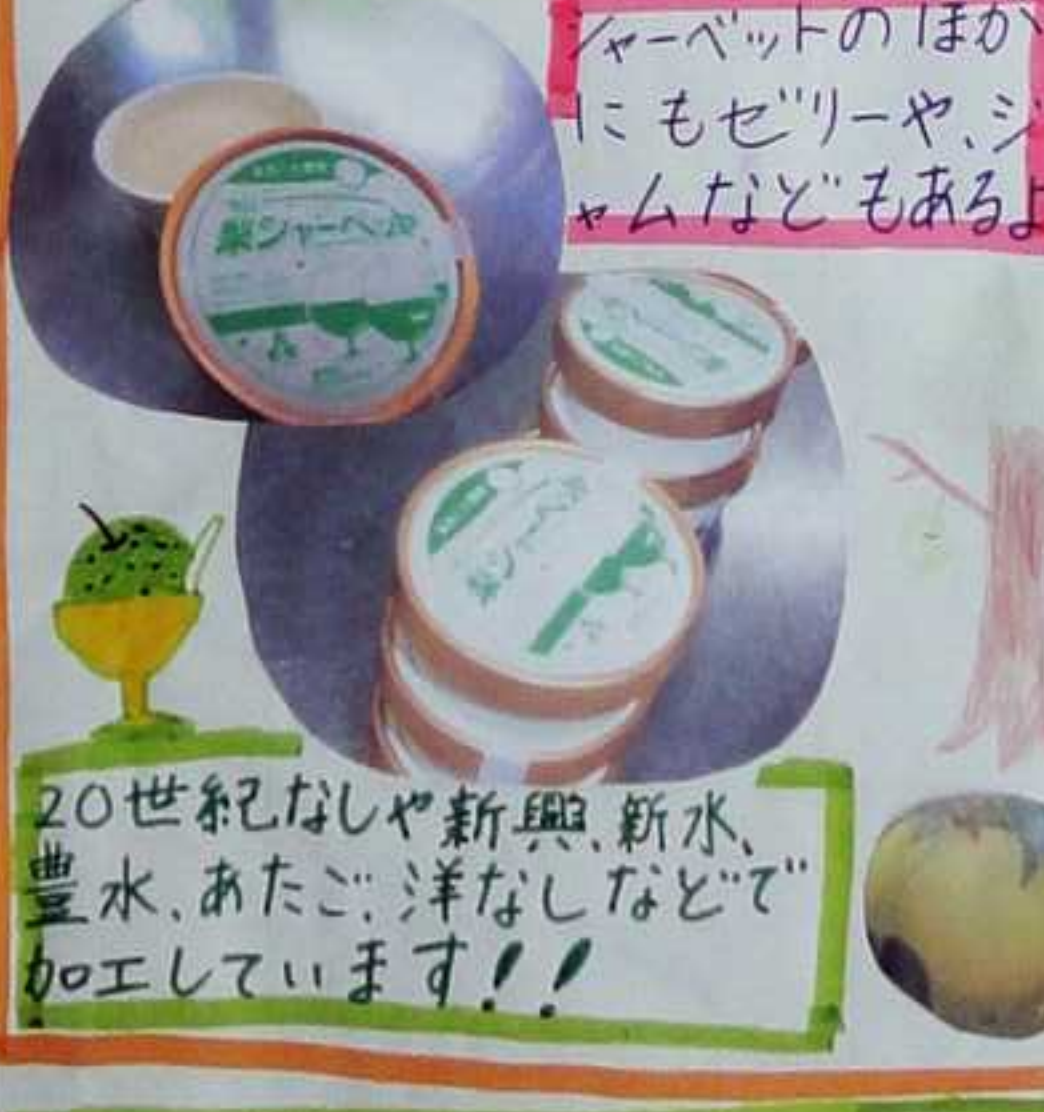 シャーベットのほか
にもゼリーや、ジ
ャムなどもあるよ
梨シャーベット
20世紀なしや新興、新水、
豊水、あたご、洋なしなどで
加工しています!!